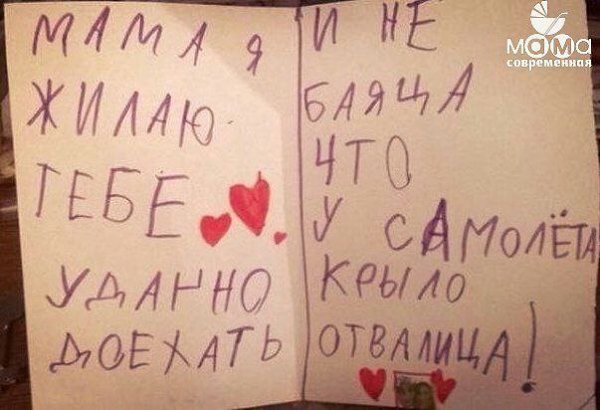 МАМА Я
ЖИЛАЮ
ТЕБЕ
УДАННО
ДОЕХАТЬ
И НЕ
БАЯЦА
ЧТО
У САМОЛЁТА
КРЫЛО
ОТВАЛИЦА!
мама
современная